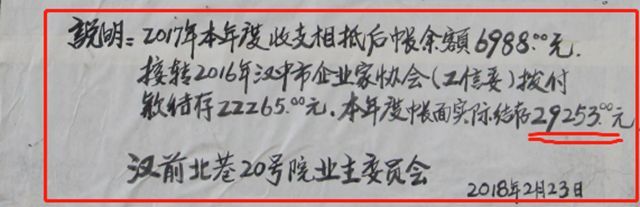 説明：2017年本年度收支相抵后帐余額6988.00元.
接转2016年汉中市企业家协会(工信委)拨付
款结存22265.00元.本年度帐面实际结存29253.00元
汉前北巷20号院业主委员会
2018年2月23日